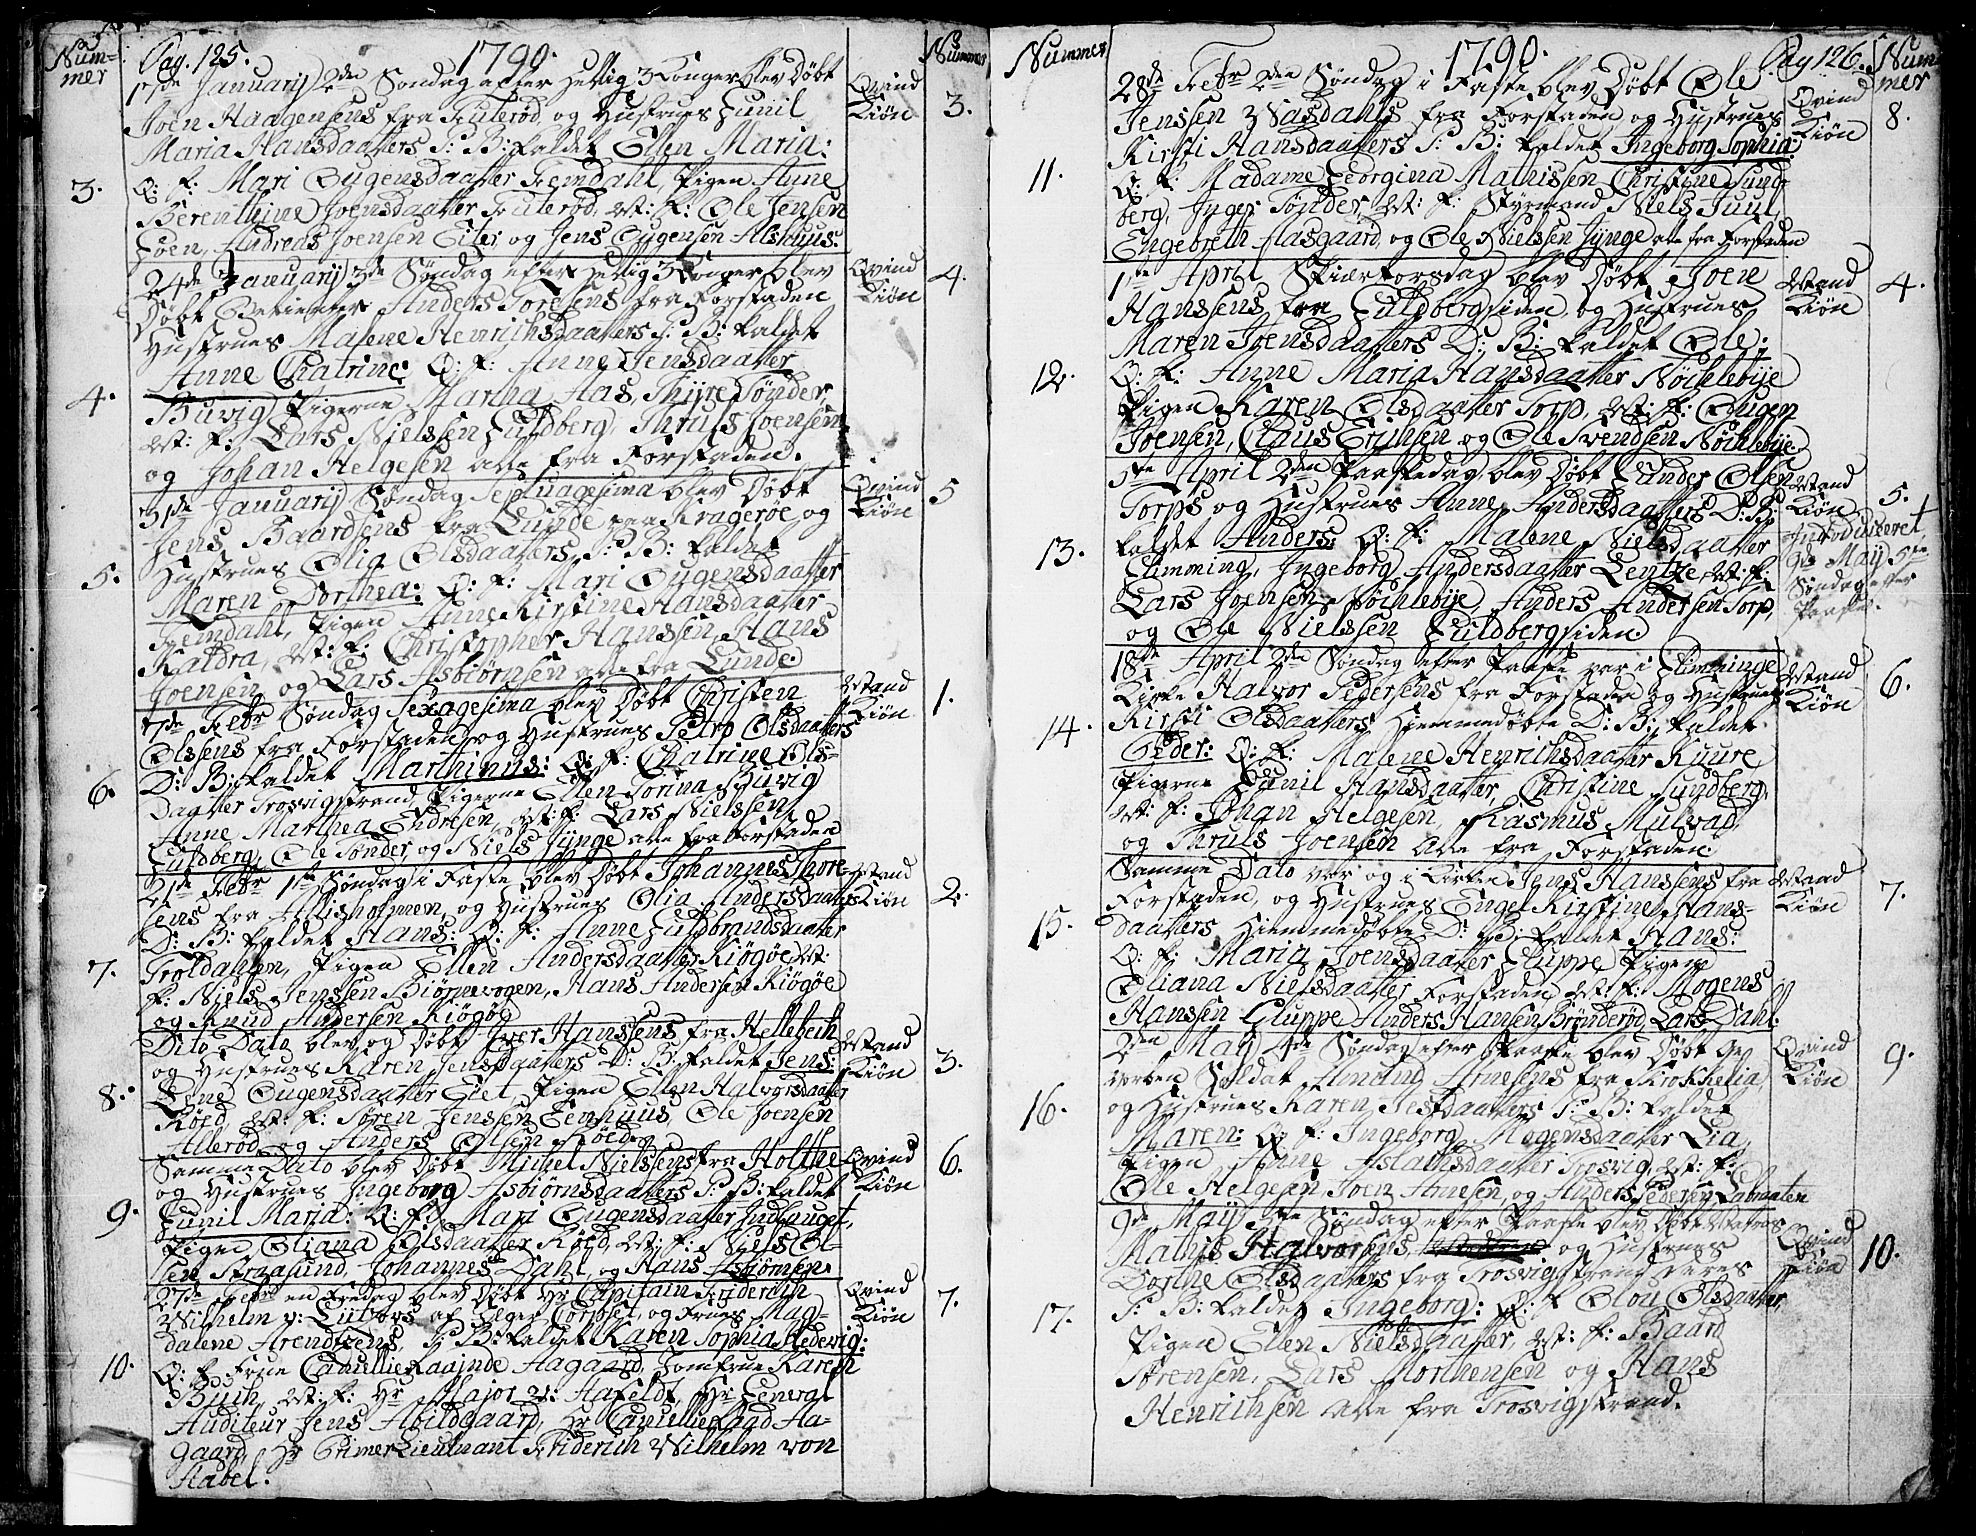 Num-
mer
Pag. 125.
1790.
Nummer
17de Januarij 2den Søndag efter Hellig 3 Konger blev Døbt
Joen Haagensens fra Fuglerød og Hustrues Gunil
Maria Hansdaatters P: B: kaldet Ellen Maria:
Q: F: Mari Ougensdaatter Femdahl, Pigen Anne
Berenthine Joensdaatter Fuglerød, Mst: F: Ole Jensen
Joensen og Jens Ougensen
Qvind
Kiøn
3.
3.
24de Januarij 3de Søndag efter Hellig 3 Konger blev
Døbt Anders Toresens fra Forstaden
Hustrues Malene Henrichsdaatters P: B: kaldet
Anne Chatrine: Q: F: Anne Jensdaatter
Buvig, Pigerne Martha Aas, Thyre Tønder,
Mst: F: Lars Nielssen Guldberg, Thruls Joensen
og Johan Helgesen alle fra Forstaden.
Qvind
Kiøn
4.
4.
31de Januarij Søndag Septuagesima blev Døbt
Jens Baardsens fra Lunde paa Kragerøe og
Hustrues Olia Olsdaatters P: B: kaldet
Maren Dorthea: Q: F: Mari Ougensdaatter
Femdahl, Pigen Anne Kirstine Hansdaatter
Kaldra, Mst: F: Christopher Hanssen, Hans
Joensen og Lars Asbiørnsen alle fra Lunde.
Qvind
Kiøn
5
5.
7de Febr Søndag Sexagesima blev Døbt Christen
Olsens fra Forstaden og Hustrues Petro Olsdaatters
D: B: kaldet Marthinus: Q: F: Chatrine Ols-
Daatter Trosvigstrand, Pigerne Ellen Tonna Buvig
Anne Marthea Endresen, Mst: F: Lars Nielssen
Guldberg, Ole Tønder og Niels Jynge alle fra Forstaden
Mand
Kiøn
1.
6.
21de Febr 1ste Søndag i Faste blev Døbt Johannes Thore-
sens fra Alisholmen, og Hustrues Olia Andersdaatters
D: B: kaldet Hans: Q: F: Anne Guldbrandsdaatter
Troldahlen, Pigen Ellen Andersdaatter Kiøgøe, Mst:
F: Niels Jenssen Biørnevogen, Hans Andersen Kiøgøe
og Knud Andersen Kiøgøe
Mand
Kiøn
2.
7.
Dito Dato blev og Døbt Iver Hanssens fra Hellebech
og Hustrues Karen Jensdaatters D: B: kaldet Jens:
Lene Ougensdaatter Eget, Pigen Ellen Halvorsdaatter
Røed, Mst: F: Søren Jenssen Eenhuus, Ole Joensen
Allerød og Anders Olsen Røed
Mand
Kiøn
3.
8.
Samme Dato blev Døbt Michel Nielssens fra Holthe
og Hustrues Ingeborg Asbiørnsdaatters P: B: kaldet
Gunil Maria: Q: F: Mari Ougensdaatter Indlauget,
Pigen Oliana Olsdaatter Røed, Mst: F: Niels Ol-
sen Straasund, Johannes Dahl, og Hans Asbiørnsen
Qvind
Kiøn
6.
9.
27de Febr en Fredag blev Døbt Hr Capitain Friderich
Wilhelm v: Lützows af Jæger Corpset, og Frues Mag-
dalene Arendtzens, P: B: kaldet Karen Sophia Hedevig:
Q: F: Frue Camellieraainde Aagaard, Jomfrue Karen
Buch, Mst: F: Hr Major v: Hafeldt, Hr General
Auditeur Jens Abildgaard, Hr Camelieraad Aa-
gaard, Hr Primer Lieutnant Friderich Wilhelm von
Stabel.
Qvind
Kiøn
7.
10.
Nummer
1790.
Pag 126.
Num
mer
28de Febr 2den Søndag i Faste blev Døbt Ole
Jenssen Wasdahls fra Forstaden og Hustrues
Kirsti Hansdaatters P: B: kaldet Ingeborg Sophia:
Q: F: Madame Georgina Mathissen, Christine Sund-
berg, Inger Tønder, Mst: F: Styrmand Niels Juul,
Engebreth Aasgaard, og Ole Nielssen Jynge alle fra Forstaden
Qvind
Kiøn
8.
11.
1ste April Skiertorsdag blev Døbt Joen
Hanssens fra Guldbergsiden, og Hustrues
Maren Joensdaatters D: B: kaldet Ole:
Q: F: Anne Maria Hansdaatter Nøchlebye
Pigen Karen Olsdaatter Torp, Mst: F: Ougen
Joensen, Claus Erichsen og Ole Svendsen Nøchlebye.
Mand
Kiøn
4.
12.
5te April 2den Paaskedag blev Døbt Gunder Olsen
Torps og Hustrues Anne Andersdaatters D: B:
kaldet Anders: Q: F: Malene Nielsdaatter
Glimming, Ingeborg Andersdaatter Lentze, Mst: F:
Lars Joensen Nøchlebye, Anders Andersen Torp,
og Ole Nielssen Guldbergsiden
Mand
Kiøn
Introduceret
9de Maij 5te
Søndag efter
Paaske.
5.
13.
18de April 2den Søndag efter Paaske var i Glemminge
Kirke Halvor Pedersens fra Forstaden og Hustrues
Kirsti Olsdaatters Hiemmedøbte D: B: kaldet
Peder: Q: F: Malene Henrichsdaatter Kuure
Pigerne Gunil Hansdaatter, Christine Sundberg,
Mst: F: Johan Helgesen, Rasmus Mulvad,
og Thruls Joensen Alle fra Forstaden:
Mand
Kiøn
6.
14.
Samme Dato var og i Kirke Jens Hanssens fra
Forstaden, og Hustrues Engel Kirstine Hans-
daatters Hiemmedøbte D: B: kaldet Hans:
Q: F: Maria Joensdaatter Gluppe, Pigen
Eliana Nielsdaatter Forstaden, Mst: F: Mogens
Hanssen Gluppe, Anders Hansen Brønderød, Lars Dahl.
Mand
Kiøn
7.
15.
2den Maij 4de Søndag efter Paaske blev Døbt Ge
vorben Soldat Amund Arnesens fra Krokhelia,
og Hustrues Karen Jesdaatters P: B: kaldet
Maren: Q: F: Ingeborg Mogensdaatter Lia,
Pigen Anne Aslachsdaatter Trosvig, Mst: F:
Ole Helgesen, Joen Arnesen, og Anders Pedersen Labmaten
Qvind
Kiøn
9.
16.
9de Maij 5te Søndag efter Paaske blev Døbt Matros
Mathis Halvorsens og Hustrues
Dorthe Olsdaatters fra Trosvigstrand deres
P: B: kaldet Ingeborg: Q: F: Olou Olsdaatter,
Pigen Ellen Nielsdaatter, Mst: F: Baard
Sørensen, Lars Morthensen og Hans
Henrichsen alle fra Trosvigstrand.
Qvind
Kiøn
10.
17.